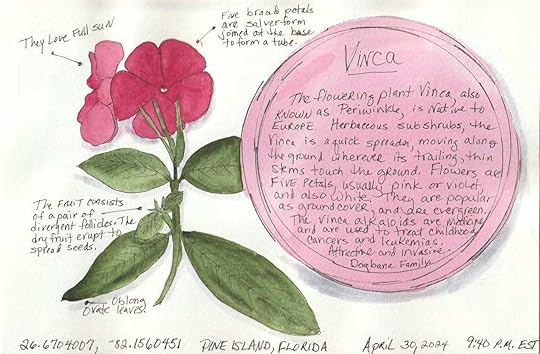 They Love Full sun
Five broad petals
are salverform
joined at the base
to form a tube.
Vinca
The flowering plant Vinca, also
known as Periwinkle, is Native to
Europe. Herbaceous subshrubs, the
Vinca is a quick spreader, moving along
the ground wherever its trailing, thin
stems touch the ground. Flowers are
Five Petals, usually pink or violet,
and also white. They are popular
as groundcover, and are evergreen.
The Vinca alkaloids are medicinal
and are used to treat childhood
cancers and leukemias.
Attractive and invasive.
Dogbane Family
The Fruit consists
of a pair of
divergent follicles. The
dry fruit erupt to
spread seeds.
Oblong
Ovate leaves.
26.6704007, -82.1560451 Pine Island, Florida April 30, 2024 9:40 P.M. EST